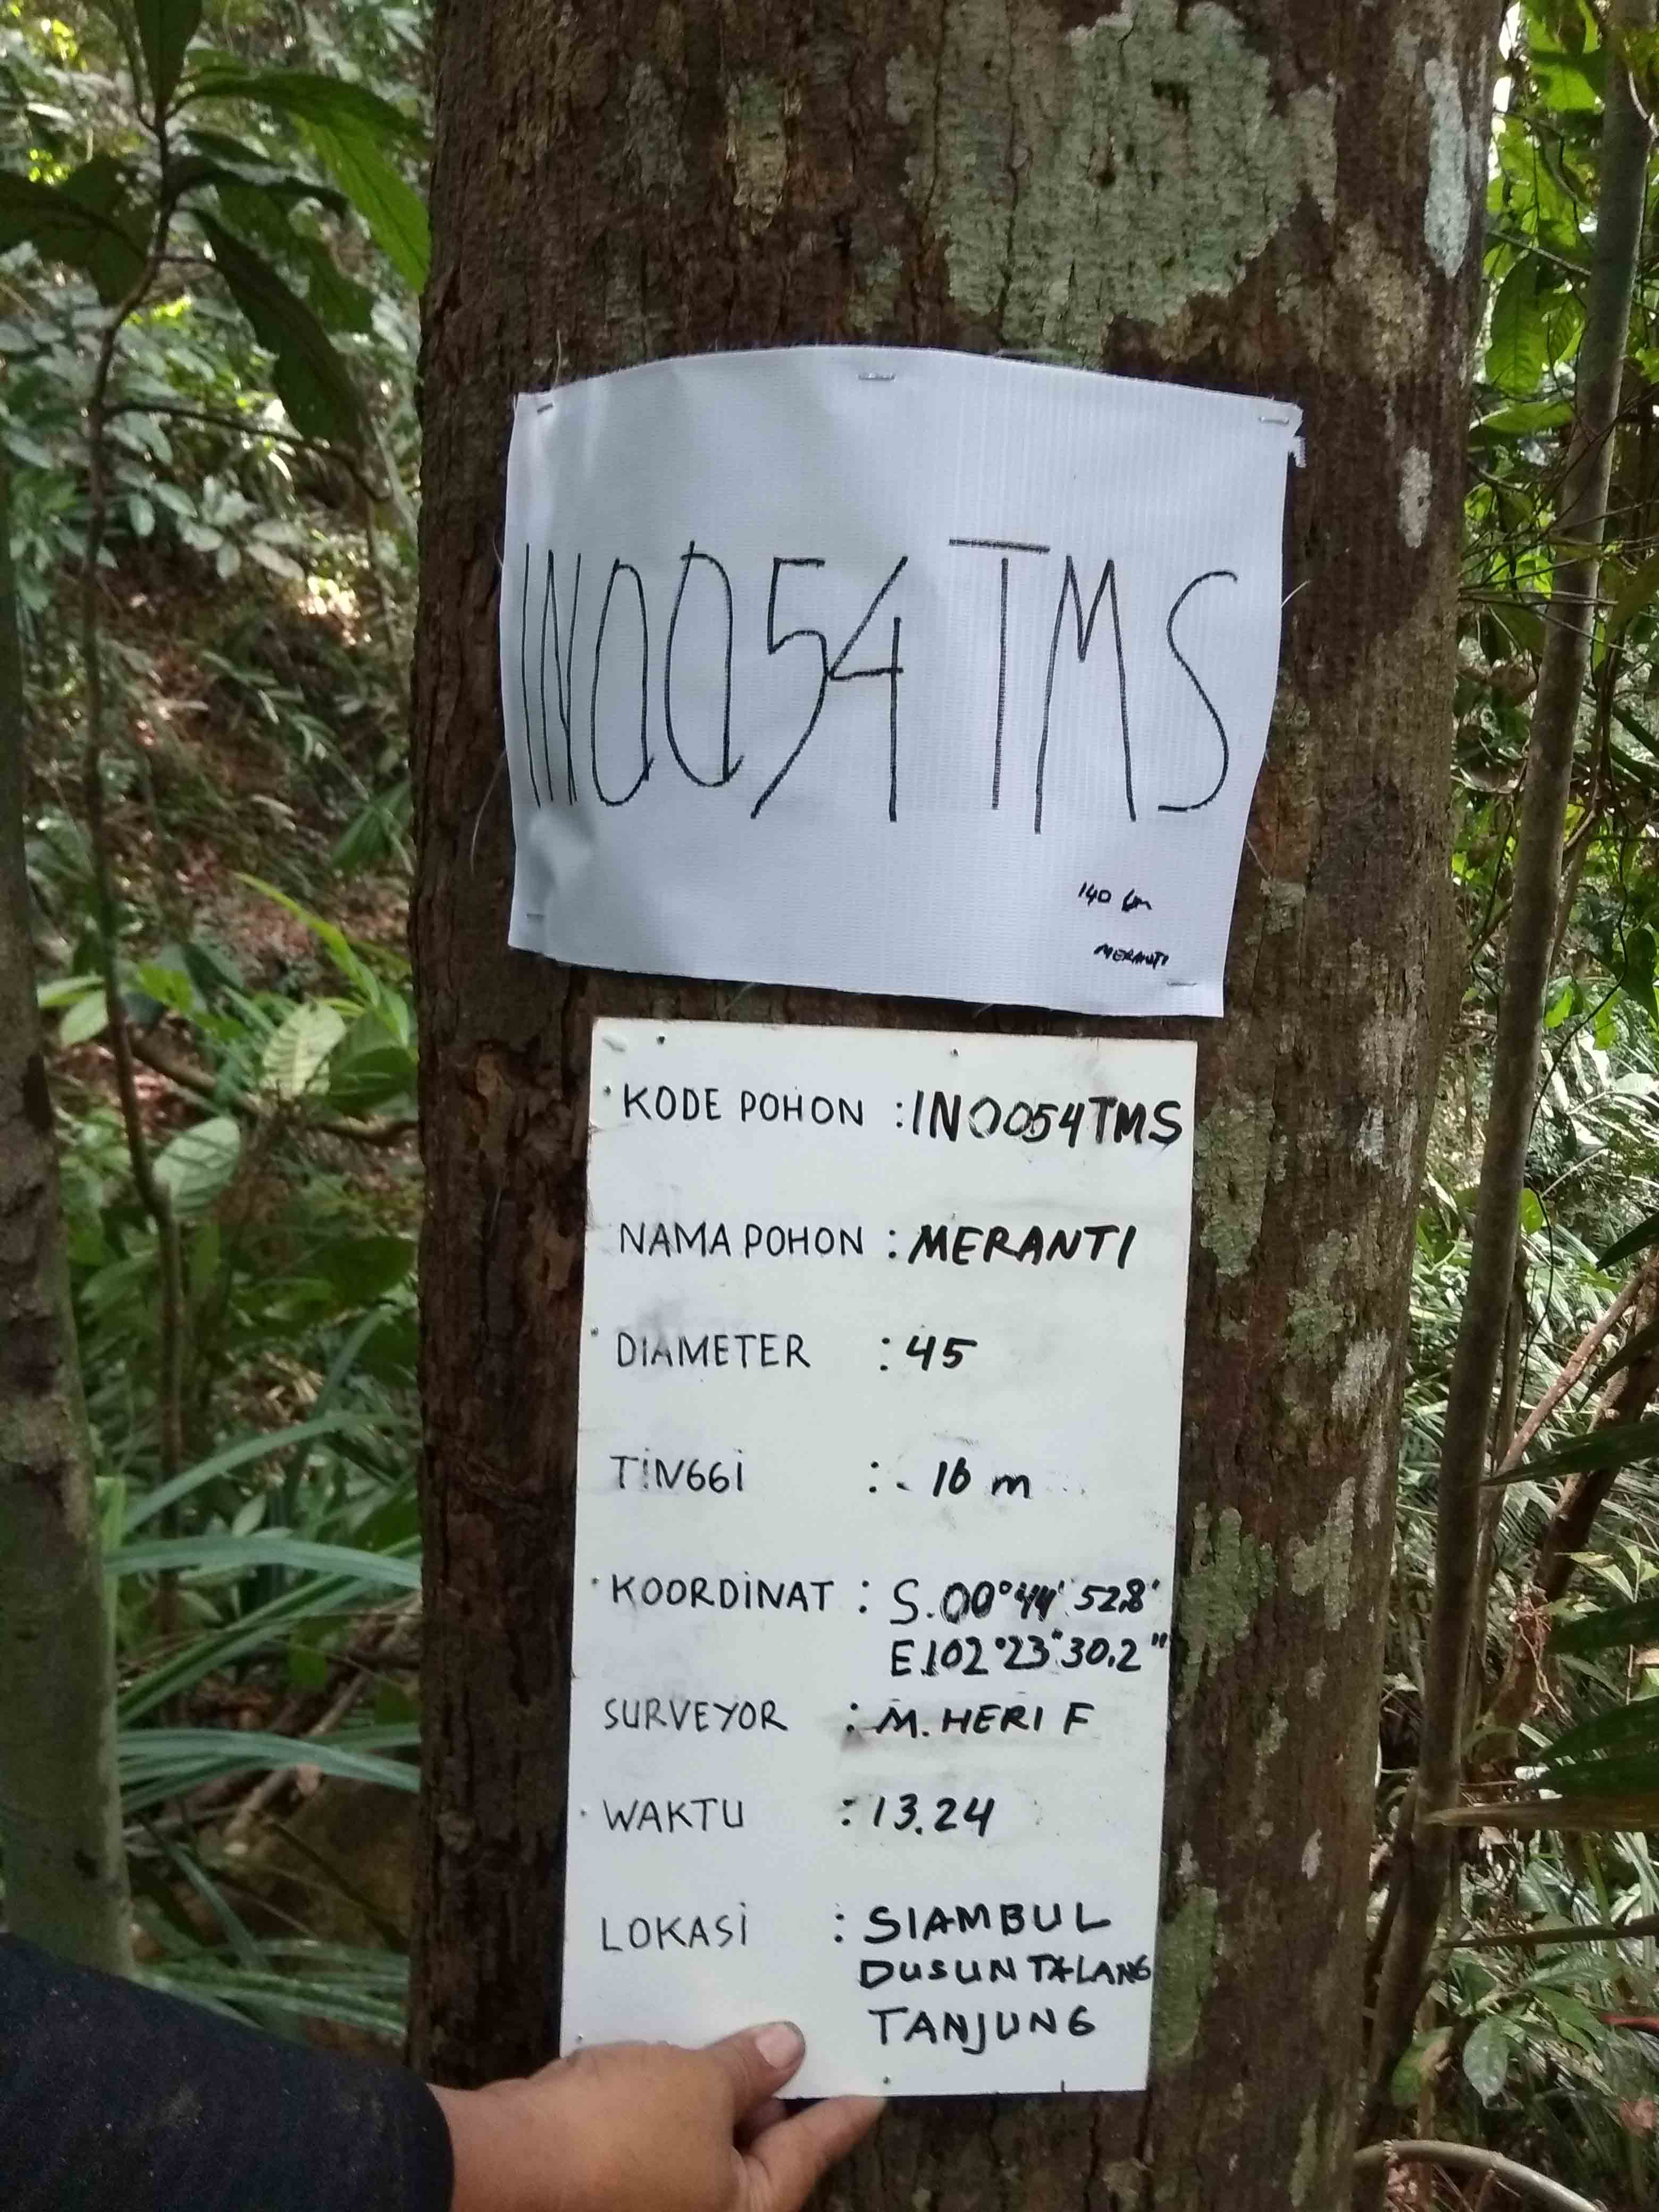 IN0054 TMS
140 cm
MERANTI
KODE POHON : IN0054TMS
NAMA POHON : MERANTI
DIAMETER : 45
TINGGI : 16 m
KOORDINAT : S.00°44' 52.8'
E.102°23"30.2"
SURVEYOR : M. HERI F
WAKTU : 13.24
LOKASI : SIAMBUL
DUSUN TALANG
TANJUNG